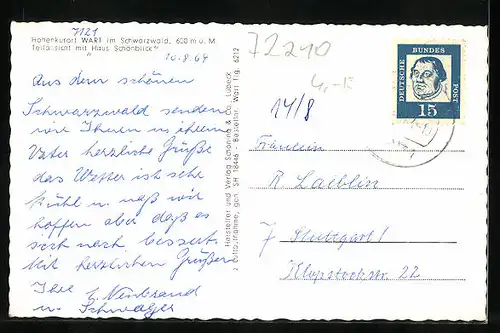 7121
Höhenkurort WART im Schwarzwald, 600 m ü. M.
Teilansicht mit Haus Schönblick
10.8.64
Aus dem schönen
Schwarzwald senden
wir Ihnen u ihrem
Vater herzliche Grüße
das Wetter ist sehr
kühl u. naß wir
hoffen aber daß es
sich noch bessert.
Mit herzlichen Grüßen
Ihre
u. Schwager
Hersteller und Verlag Schöning & Co., Lübeck
Luftaufnahme, gen. SH 18446 Bestellnr. Wart Lg. 6212
72210
4,-K
14/8
DEUTSCHE BUNDES POST
15
Fräulein
R. Laiblin
7 Stuttgart 1
Klopstockstr. 22